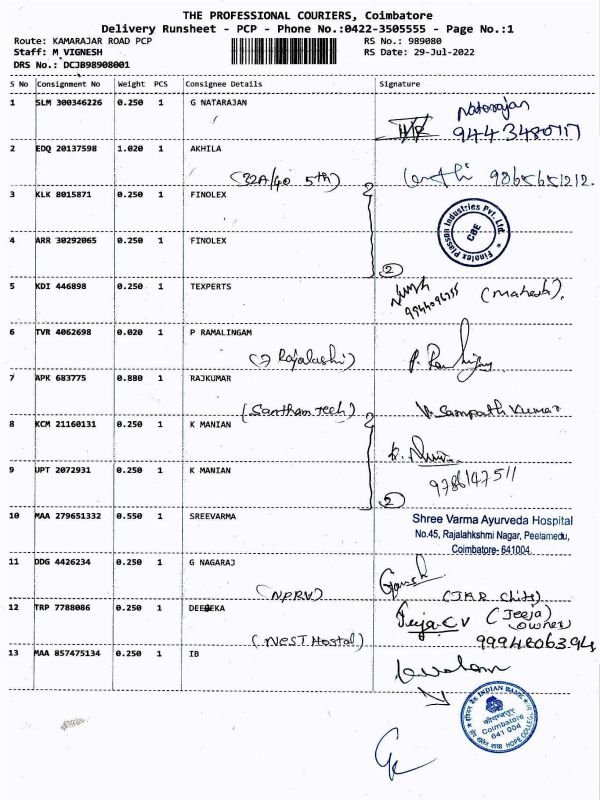 THE PROFESSIONAL COURIERS, Coimbatore
Delivery Runsheet - PCP - Phone No.:0422-3505555 - Page No.:1
Route: KAMARAJAR ROAD PCP
RS No.: 989080
Staff: M VIGNESH
RS Date: 29-Jul-2022
DRS No.: DCJB98908001
S No Consignment No Weight PCS Consignee Details Signature
1 SLM 300346226 0.250 1 G NATARAJAN
Natarajan
2 EDQ 20137598 1.020 1 AKHILA
(32A/40 5th)
9865651212.
3 KLK 8015871 0.250 1 FINOLEX
Finolex Plasson Industries Pvt. Ltd.
CBE
4 ARR 30292065 0.250 1 FINOLEX
2
5 KDI 446898 0.250 1 TEXPERTS
(Mahesh).
6 TVR 4062698 0.020 1 P RAMALINGAM
7 APK 683775 0.880 1 RAJKUMAR
(Santham Tech)
V. Sampath Kumar
8 KCM 21160131 0.250 1 K MANIAN
9 UPT 2072931 0.250 1 K MANIAN
9786147511
2
10 MAA 279651332 0.550 1 SREEVARMA
Shree Varma Ayurveda Hospital
No.45, Rajalahkshmi Nagar, Peelamedu,
Coimbatore- 641004.
11 DDG 4426234 0.250 1 G NAGARAJ
(NPRV)
Ganesh
12 TRP 7788086 0.250 1 DEEPEKA
(Jeeja)
owner
(NEST Hostal)
9994806394
13 MAA 857475134 0.250 1 IB
INDIAN BANK
Coimbatore
641 004
HOPE COLLEGE